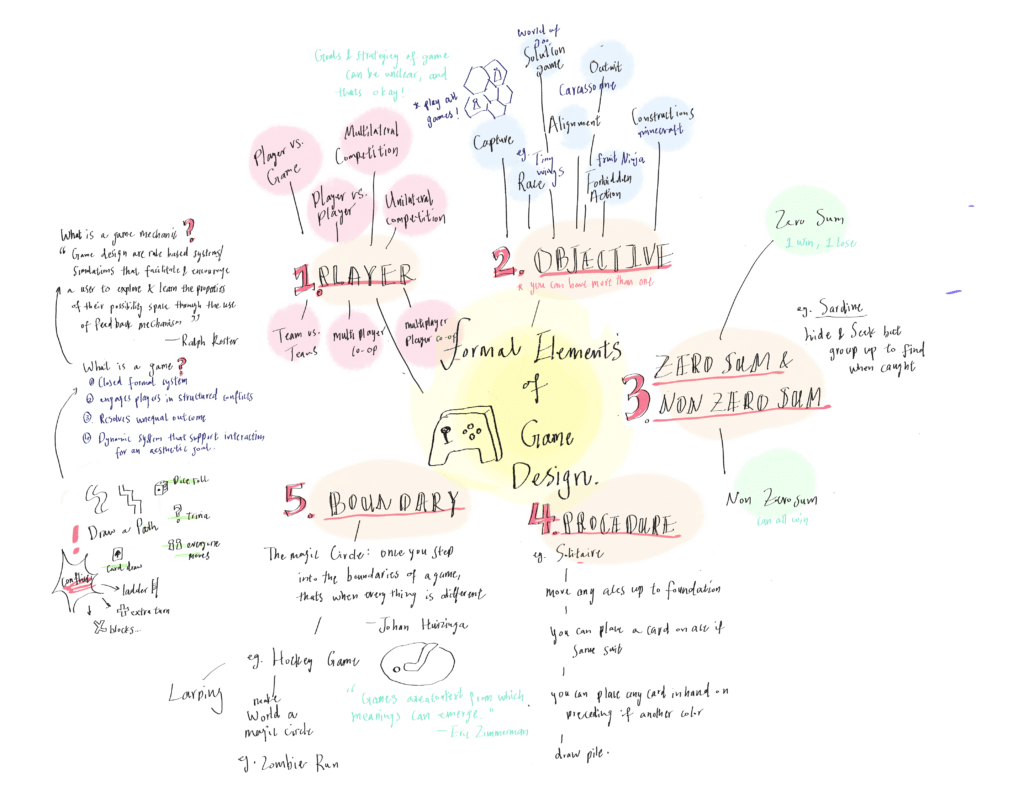 Formal Elements
of
Game
Design.
1. PLAYER
Goals & strategies of game
can be unclear, and
thats okay!
Player vs.
Game
Multilateral
Competition
Player vs.
Player
Unilateral
competition
Team vs.
Teams
multi player
co-op
multiplayer
player co-op
2. OBJECTIVE
* you can have more than one
* play all
games!
Capture
eg. Tiny
wings
Race
World of
goo
Solution
game
Alignment
Outwit
Carcassonne
fruit Ninja
Forbidden
Action
Constructions
minecraft
3. ZERO SUM &
NON ZERO SUM
Zero Sum
1 win, 1 lose
eg. Sardine
hide & Seek but
group up to find
when caught
Non Zero sum
can all win
4. PROCEDURE
eg. Solitaire
move any aces up to foundation
you can place a card on ace if
same suit
you can place any card in hand on
preceding if another color
draw pile.
5. BOUNDARY
The magic Circle: once you step
into the boundaries of a game,
thats when every thing is different
— Johan Huizinga
eg. Hockey Game
Larping
make
World a
magic circle
eg. Zombie Run
"Games are context from which
meanings can emerge."
— Eric Zimmerman
What is a game mechanic?
"Game design are rule based systems/
simulations that facilitate & encourage
a user to explore & learn the properties
of their possibility space through the use
of feed back mechanisms"
— Ralph Koster
What is a game?
① Closed formal system
② engages players in structured conflicts
③ Resolves unequal outcome
④ Dynamic system that support interaction
for an aesthetic goal.
Dice roll
Trivia
everyone
moves
! Draw a Path
card draw
conflict
ladder
extra turn
blocks...